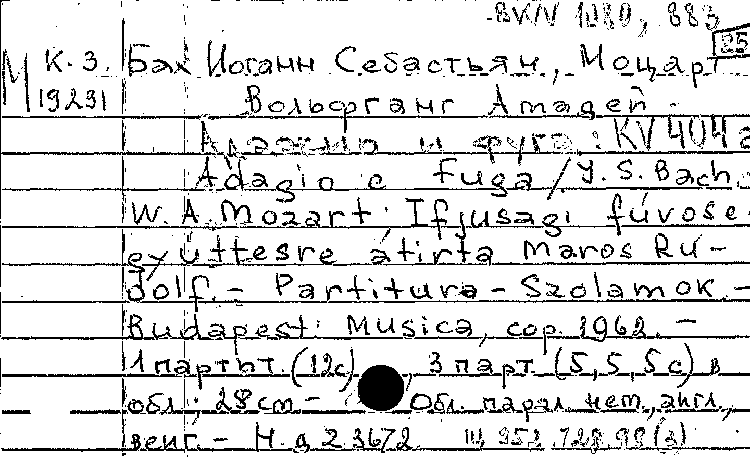 BVN 1080, 883
25
М К.З. Бах Иоганн Себастьян, Моцарт
19231 Вольфганг Амадей.
Адажио и фуга: KV 404a
Adagio e fuga / J. S. Bach,
W. A. Mozart; Ifjusagi fúvose-
gyüttesre átirta Maros Ru-
dolf. - Partitura - Szolamok. -
Budapest: Musica, cop. 1962. -
1 партыт. (12с), 3 парт. (5, 5, 5с) в
обл.; 28 cm - Обл. парал. нем., англ.,
венг. - Н. д. Z. 3672